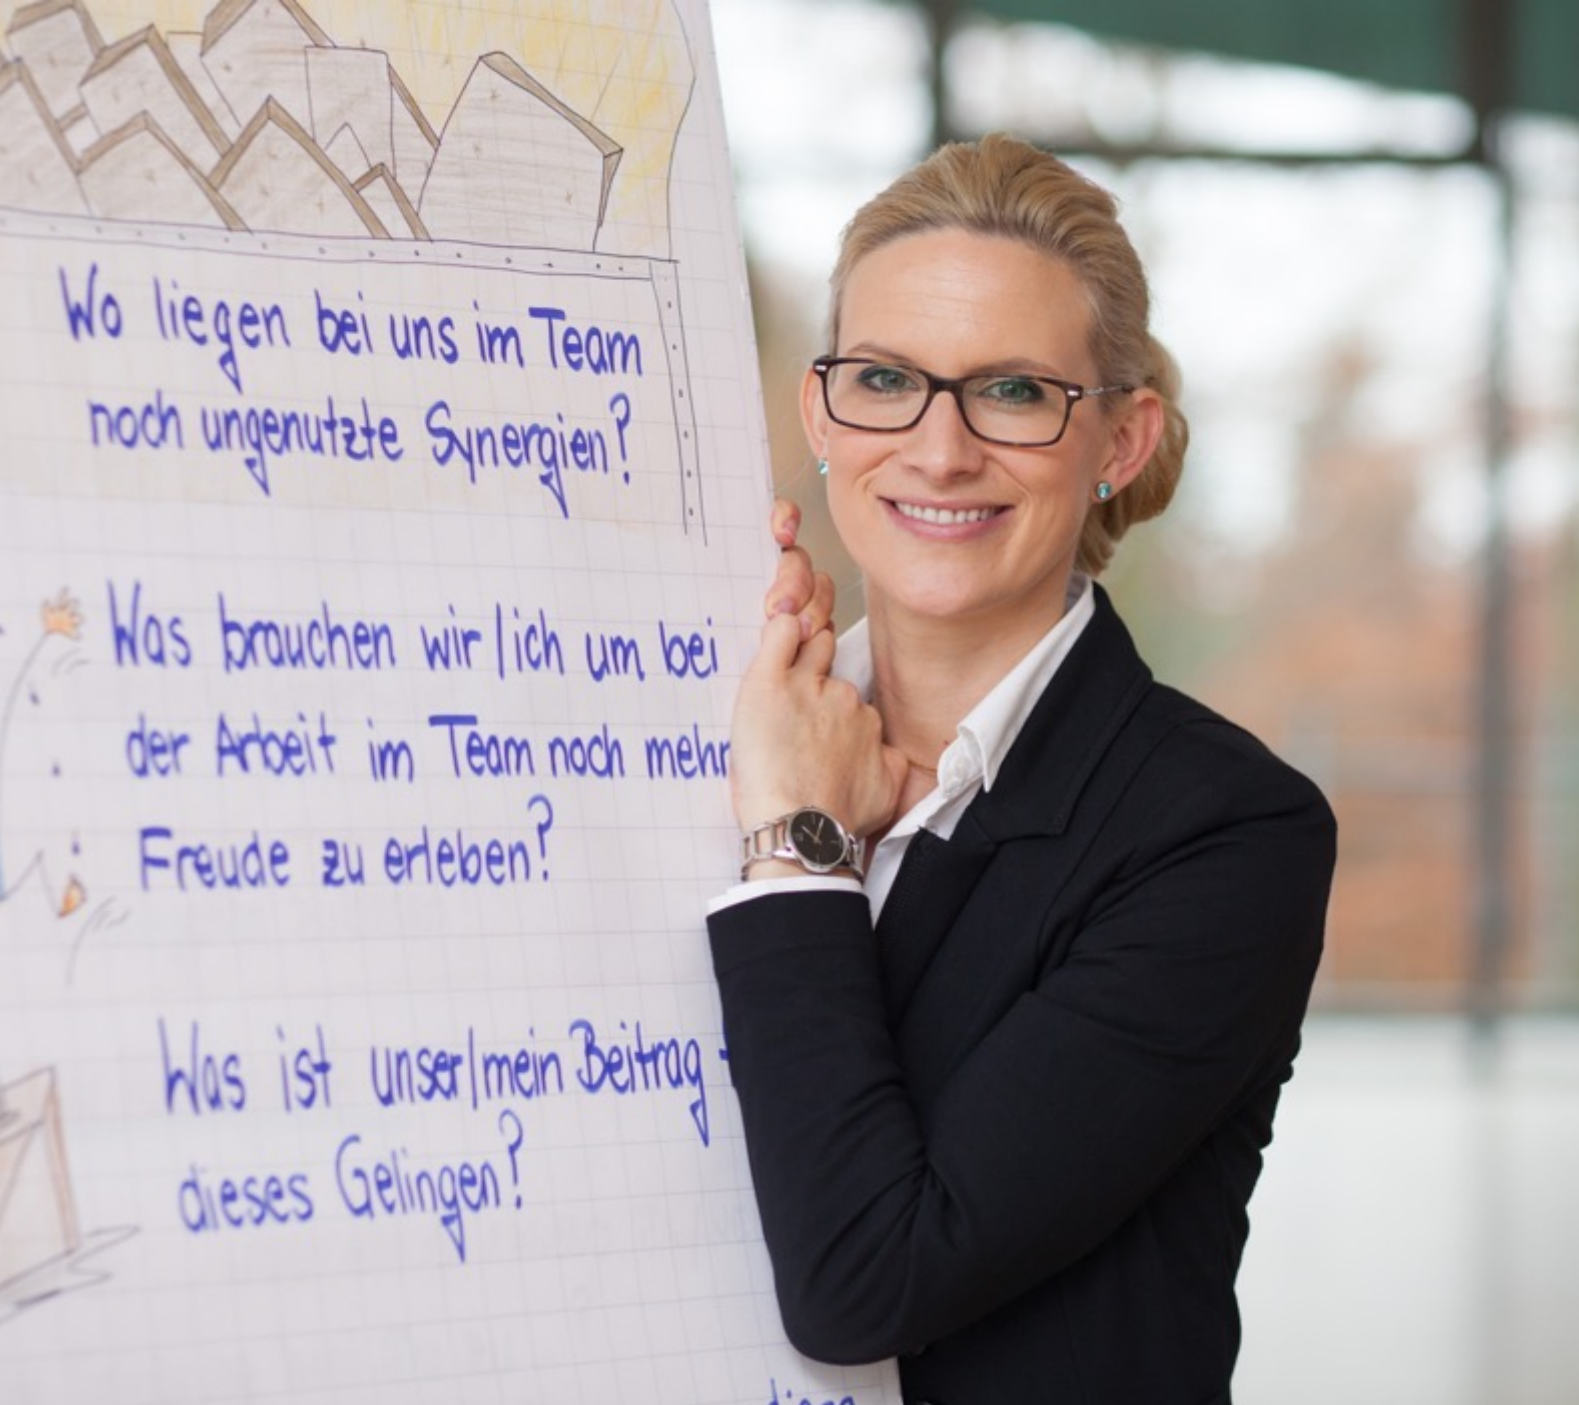 Wo liegen bei uns im Team
noch ungenutzte Synergien?
Was brauchen wir/ich um bei
der Arbeit im Team noch mehr
Freude zu erleben?
Was ist unser/mein Beitrag
dieses Gelingen?